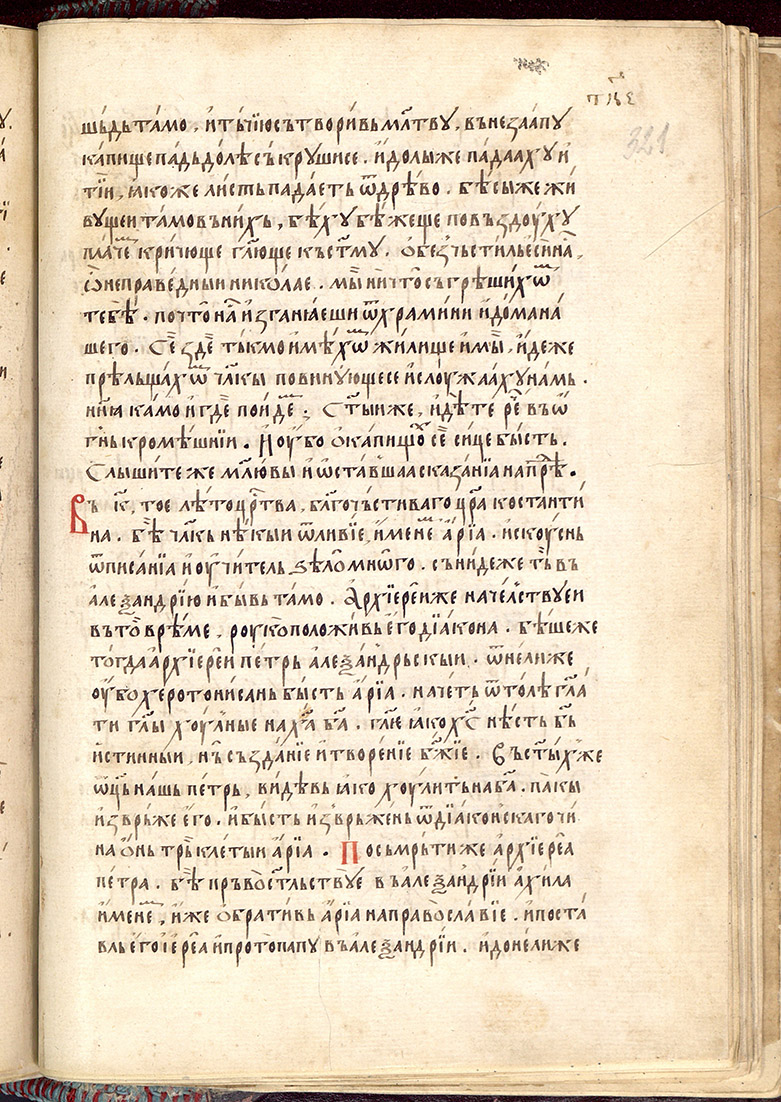 т҃
п҃кз
321
шьдь та́мо, и҆ ты́чїю сътвори́вь мл҃тву, вънеꙁаапу
ка́пище па́дь до́лѣ съкру́шисе. и҆до́лы же па́даахꙋ и҆
ті́и, ꙗ҆́коже ли́сть па́даеть ѿ дрѣ́во. бѣ́сы же жи
вꙋщеи та́мо въ ни́хь, бѣ́хꙋ бѣ́жеще по въꙁдоу́хꙋ
пла́чеще кри́чюще гл҃юще къ ст҃мꙋ. ѡ҆беꙁ̾чьсти́ль е҆си́ на́,
ѽ непра́ведныи нико́лае. мы̀ ничто́ съгрѣ́шихѡⷨ
тебѣ̀. по что̀ на́ иꙁга́нꙗеши ѿ хра́мини и҆ до́ма на́
шего. Се̏ ꙁде̏ тъ́кмо и҆мѣ́хѡⷨ жи́лище и҆ мы̀, и҆де́же
прѣльща́хѡⷨ чл҃кы повинꙋ́ющесе и҆ слоу́жаахꙋ на́мь.
нн҃ꙗ ка́мо и҆ где̏ пои́демь. Ст҃ы́и же, и҆дѣ́те ре̏ въ ѡ҆́
гнь кромѣ́шнїи. И҆ оу҆́бо ѡ҆ ка́пищоⷯ се̏ си́це бы́сть.
Слы́шите же мл҃ю вы̀ и҆ ѡ҆ста́вшаа скаꙁа́нїа напрѣⷣ.
Въ к҃, тое лѣ́то црⷭ҇тва, бл҃гочь́стиваго цр҃а костанти́
на. бѣ̏ чл҃кь нѣ́кыи ѿ ливі́е, и҆́менеⷨ а҆́рїа. и҆скоу́снь
ѿ писа́нїа и҆ оу҆чи́тель ѕѣло̀ мнѡ́го. съни́деже тъ̀ въ
але́ѯандрїю и҆ бы́вь та́мо. А҆рхїере́ниже начел́ствꙋеи
въ то̀ врѣ́ме, роукоположи́вь е҆го̀ дїа́кона. бѣ́шеже
тогда̀ а҆рхїере́и пе́трь але́ѯандрьскыи. ѿне́лиже
оу҆́бо херотони́сань бы́сть а҆́рїа. на́четь ѿто́лѣ гл҃а
ти гл҃ы хꙋ́лные на х҃а б҃а. гл҃ю ꙗ҆ко х҃с нѣ́сть б҃ь
и҆́стинныи, нь̏ съꙁда́нїе и҆ творе́нїе бж҃їе. Въ ст҃ы́хⷤе
ѡ҆ц҃ь на́шь пе́трь, ви́дѣвь ꙗ҆́ко хꙋ́лить на б҃а. па́кы
и҆ꙁврь́же е҆го̀. и҆ бы́сть и҆ꙁврь́жень ѿ дїа́конскаго чи́
на ѡ҆́нь трь́клетыи а҆́рїа. По съмрь́ти же а҆рхїере́а
пе́тра. бѣ̏ прьвост҃льствꙋе въ але́ѯандрїи а҆хи́ла
и҆́менеⷨ, и҆́же ѡ҆брати́вь а҆́рїа на правосла́вїе. и҆ поста́
вль е҆го̀ і҆ере́а и҆ протопа́пꙋ въ але́ѯандрїи. и҆ доне́лиже